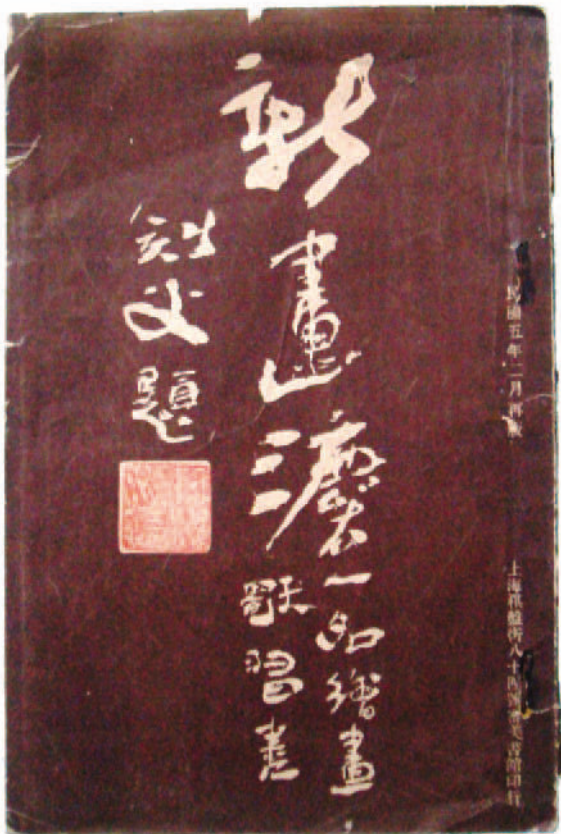 民國五年二月再版
上海棋盤街八十四號審美書館印行
新畫灋
一名繪畫
獨習書
劍父題